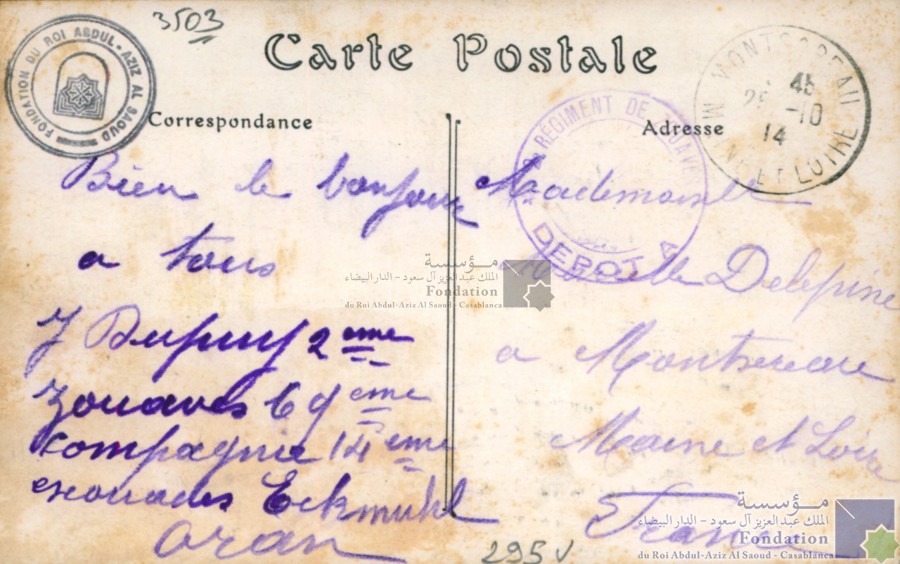 3503
Carte Postale
FONDATION DU ROI ABDUL-AZIZ AL SAOUD
Correspondance
Adresse
MONTSOREAU
45
25 -10
14
MAINE ET LOIRE
RÉGIMENT DE ZOUAVES
DEPOT
Bien le bonjour
a tous
J Dupuy 2 eme
Zouaves 69 eme
Compagnie 14 eme
escouades Eckmuhl
Oran
295 V
Mademoiselle
Delepine
a Montsereau
Maine et Loire
France
مؤسسة
الملك عبد العزيز آل سعود - الدار البيضاء
Fondation
du Roi Abdul-Aziz Al Saoud - Casablanca
مؤسسة
الملك عبد العزيز آل سعود - الدار البيضاء
Fondation
du Roi Abdul-Aziz Al Saoud - Casablanca